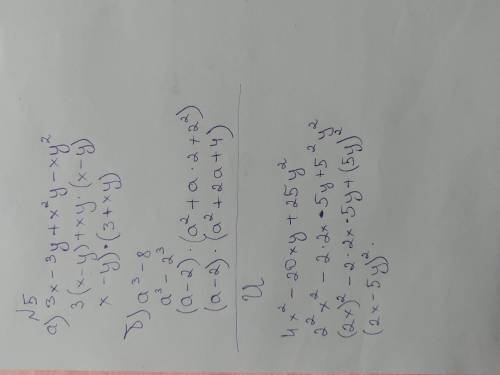 √5
а) 3x - 3y + x²y - xy²
3(x-y) + xy · (x-y)
x - y) · (3 + xy)
б) a³ - 8
a³ - 2³
(a-2) · (a² + a · 2 + 2²)
(a-2) · (a² + 2a + 4)
И
4x² - 20xy + 25y²
2²x² - 2 · 2x · 5y + 5²y²
(2x)² - 2 · 2x · 5y + (5y)²
(2x - 5y)².